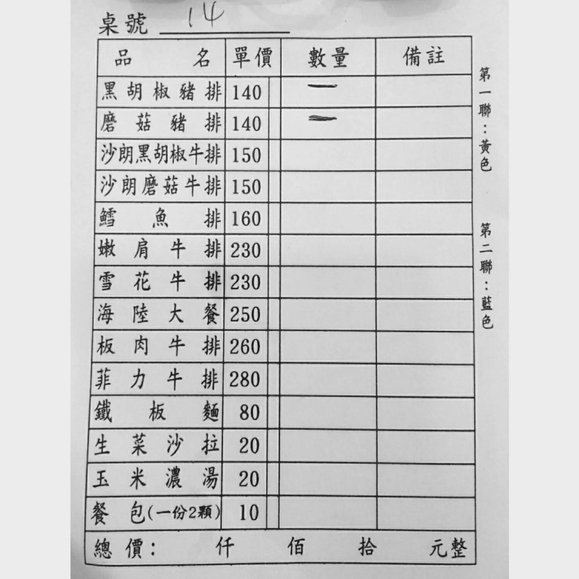 桌號 14
品名 單價 數量 備註
黑胡椒豬排 140 一
磨菇豬排 140 一
沙朗黑胡椒牛排 150
沙朗磨菇牛排 150
鱈魚排 160
嫩肩牛排 230
雪花牛排 230
海陸大餐 250
板肉牛排 260
菲力牛排 280
鐵板麵 80
生菜沙拉 20
玉米濃湯 20
餐包(一份2顆) 10
總價: 仟 佰 拾 元整
第一聯:黃色
第二聯:藍色